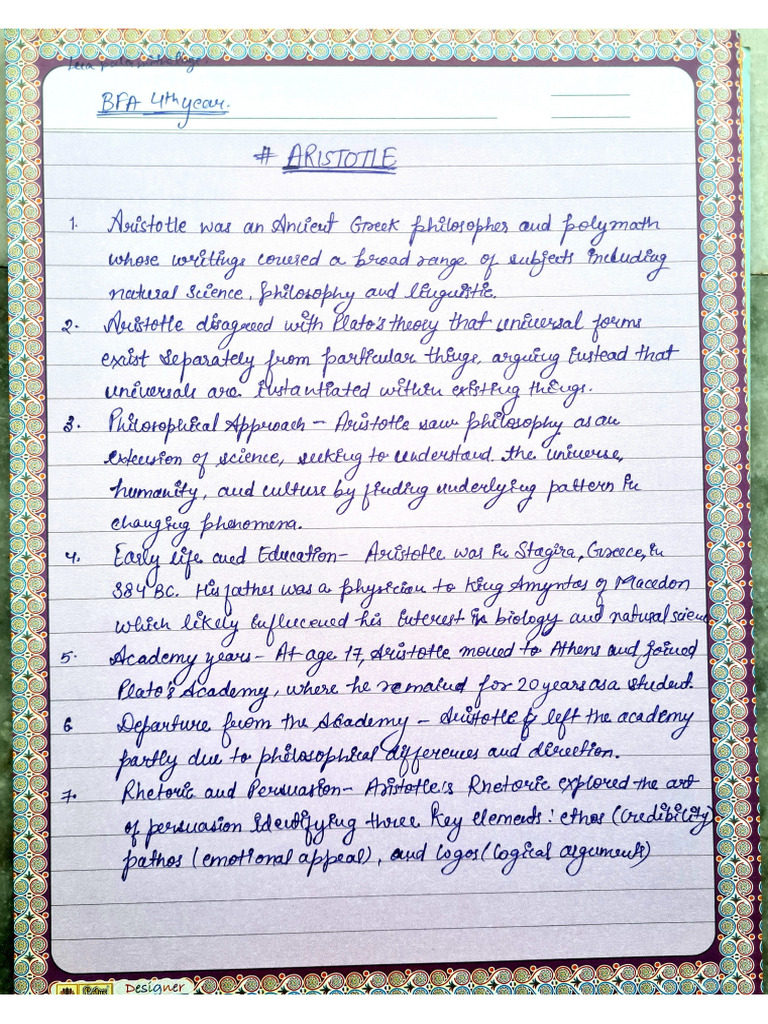 BFA 4th year.
# ARISTOTLE
1. Aristotle was an Ancient Greek philosopher and polymath
whose writings covered a broad range of subjects including
natural science, philosophy and linguistic.
2. Aristotle disagreed with Plato's theory that universal forms
exist separately from particular things, arguing instead that
universals are instantiated within existing things.
3. Philosophical Approach - Aristotle saw philosophy as an
extension of science, seeking to understand the universe,
humanity, and culture by finding underlying pattern in
changing phenomena.
4. Early life and Education - Aristotle was in Stagira, Greece, in
384 BC. His father was a physician to King Amyntas of Macedon
which likely influenced his interest in biology and natural scienc
5. Academy years - At age 17, Aristotle moved to Athens and joined
Plato's Academy, where he remained for 20 years as a student.
6 Departure from the Academy - Aristotle left the academy
partly due to philosophical differences and direction.
7. Rhetoric and Persuasion - Aristotle's Rhetoric explored the art
of persuasion identifying three key elements: ethos (credibility)
pathos (emotional appeal), and logos (logical arguments)
Designer